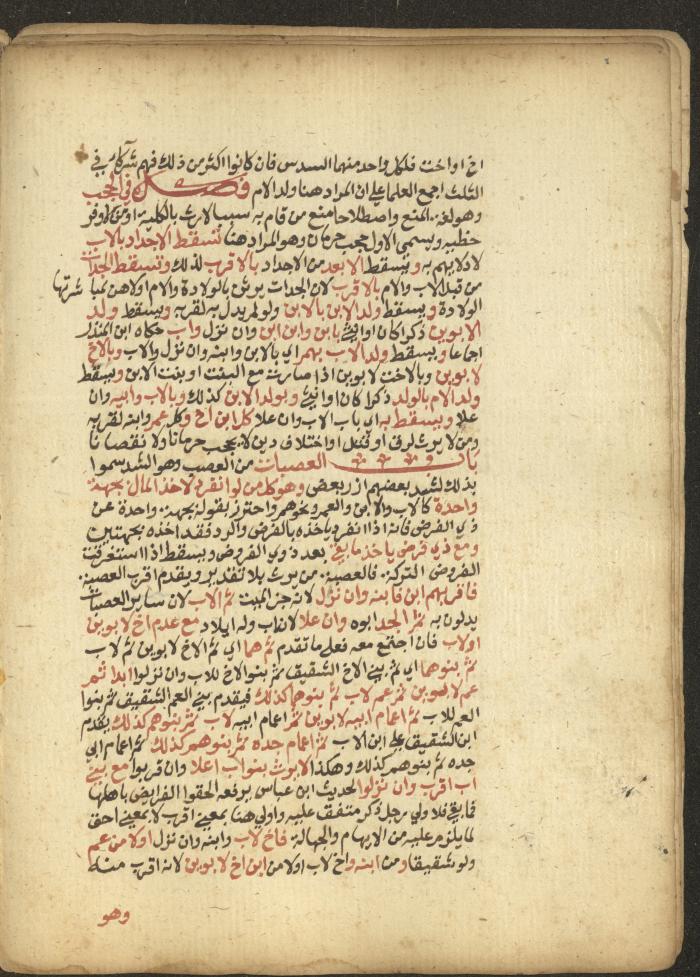 اخ او اخت فلكل واحد منهما السدس فان كانوا اكثر من ذلك فهم شركاء في
الثلث اجمع العلما علي ان المراد هنا ولد الام فصل في الحجب
وهو لغة المنع واصطلاحا منع من قام به سبب الارث بالكلية او من اوفر
حظيه ويسمي الاول حجب حرمان وهو المراد هنا تسقط الاجداد بالاب
لادلايهم به وتسقط الابعد من الاجداد بالاقرب لذلك وتسقط الجدات
من قبل الاب والام بالاقرب لان الجدات يرثن بالولادة والام اولاهن لمباشرتها
الولادة ويسقط ولد الابن بالابن ولو لم يدل به لقربه ويسقط ولد
الابوين ذكرا كان او انثي بابن وابن ابن وان نزل واب حكاه ابن المنذر
اجماعا ويسقط ولد الاب بهم اي بالابن وابنه وان نزل والاب وبالاخ
لابوين وبالاخت لابوين اذا صارت مع البنت او بنت الابن ويسقط
ولد الام بالولد ذكرا كان او انثي وبولد الابن كذلك وبالاب وابيه وان
علا ويسقط به اي باب الاب وان علا كل ابن اخ وكل عم وابنه لقربه
ومن لا يرث لرق او قتل او اختلاف دين لا يحجب حرمانا ولا نقصانا
باب العصبات من العصب وهو الشد سموا
بذلك لشد بعضهم ازر بعض وهو كل من لو انفرد لاخذ المال بجهة
واحدة كالاب والابن والعم ونحوهم واحترز بقوله بجهة واحدة عن
ذي الفرض فانه اذا انفرد ياخذه بالفرض والرد فقد اخذه بجهتين
ومع ذي فرض ياخذ ما بقي بعد ذوي الفروض ويسقط اذا استغرقت
الفروض التركة فالعصبة من يرث بلا تقدير ويقدم اقرب العصبة
فاقربهم ابن فابنه وان نزل لانه جز الميت ثم الاب لان ساير العصبات
يدلون به ثم الجد ابوه وان علا لانه اب وله ايلاد مع عدم اخ لابوين
او لاب فان اجتمع معه فعلي ما تقدم ثم هما اي ثم الاخ لابوين ثم لاب
ثم بنوهما اي ثم بني الاخ الشقيق ثم بنو الاخ للاب وان نزلوا ابدا ثم
عم لابوين ثم عم لاب ثم بنوهم كذلك فيقدم بني العم الشقيق ثم بنوا
العم للاب ثم اعمام ابيه لابوين ثم اعمام ابيه لاب ثم بنوهم كذلك يقدم
ابن الشقيق علي ابن الاب ثم اعمام جده ثم بنوهم كذلك ثم اعمام ابي
جده ثم بنوهم كذلك وهكذا لا يرث بنو اب اعلا وان قربوا مع بني
اب اقرب وان نزلوا لحديث ابن عباس يرفعه الحقوا الفرايض باهلها
فما بقي فلاولي رجل ذكر متفق عليه واولي هنا بمعني اقرب لا بمعني احق
لما يلزم عليه من الابهام والجهالة فاخ لاب وابنه وان نزل اولا من عم
ولو شقيقا ومن ابنه واخ لاب اولا من ابن اخ لابوين لانه اقرب منه
وهو